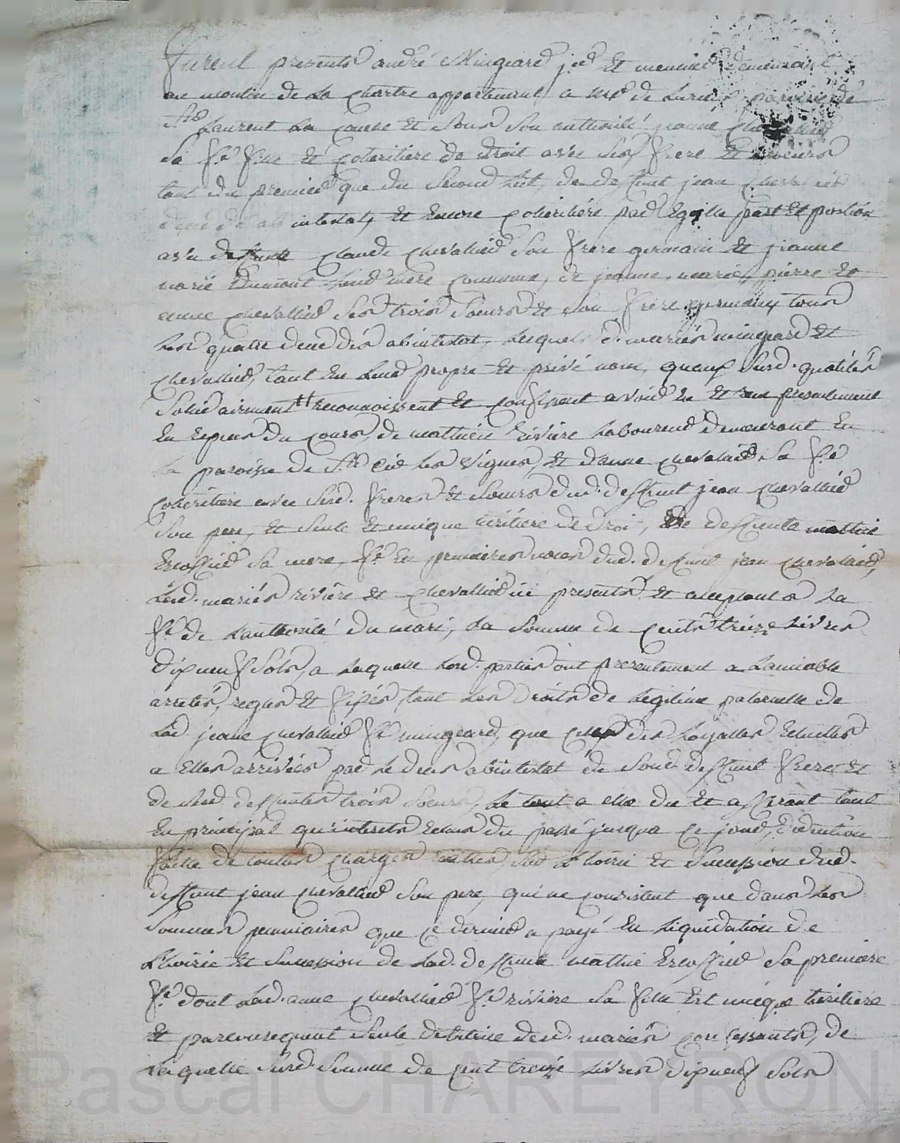 Furent presents andré Mingeard jne et meunier demeurant
au moulin de La Chartre appartenant a Mr de Luzeul paroisse de
St Laurent La Conche et sous son authorité jeanne Chevallier
sa fe fille et coheritiere de droit avec ses frere et soeurs
tant du premier que du second lict, de deffunt jean Chevallier
decedé ab intestat, et encore coheritiére par Egalle part et portion
avec Claude Chevallier son frere germain et jeanne
marie Dumont leur mere commune, de jeanne, marie, pierre et
anne Chevallier ses trois soeurs et son frere germains tous
Les quatre decedés abintestat, Lesquels d. mariés mingeard et
Chevallier, tant en Leur propre et privé nom, qu'aux susd. qualités
solidairement reconnoissent et confessent avoir eu et reçu presentement
En especes du cours, de mathieu Riviére Laboureur demeurant En
La paroisse de St Cir les Vignes, et d'anne Chevallier sa fe
coheritiere avec sesd. freres et soeurs dud. deffunt jean Chevallier
son pere, et seule et unique héritiere de droit, de deffunte mathie
Ercossier sa mere, fe en premieres noces dud. deffunt jean Chevallier,
Lesd. mariés riviére et Chevallier ici presents et acceptants La
fe de L'authorité du mari, La somme de Cent treize Livres
dixneuf sols, a Laquelle Lesd. parties ont presentement a L'amiable
arretés, reglés et fixés, tant Les Droits de Legitime paternelle de
Lad. jeanne Chevallier fe mingeard, que ceux des Loyalles Echuttes
a Elles arrivées par Le deces abintestat de sond. deffunt frere et
de sesd. deffuntes trois soeurs, Le tout a elle du et afferant tant
En principal qu'interets Echus du passé jusqua ce jour, deduction
faite de toutes charges sur L'hoirie et succession dud.
deffunt jean Chevallier son pere, qui ne consistent que dans Les
sommes pecuniaires que ce dernier a payé En Liquidation de
L'hoirie et succession de Lad. deffunte mathie Ercossier sa premiere
fe dont Lad. anne Chevallier fe riviére sa fille Est unique héritiere
et par consequent seule desd. mariés confessants, de
Laquelle susd. somme de cent treize Livres dixneuf sols
Pascal CHAREYRON